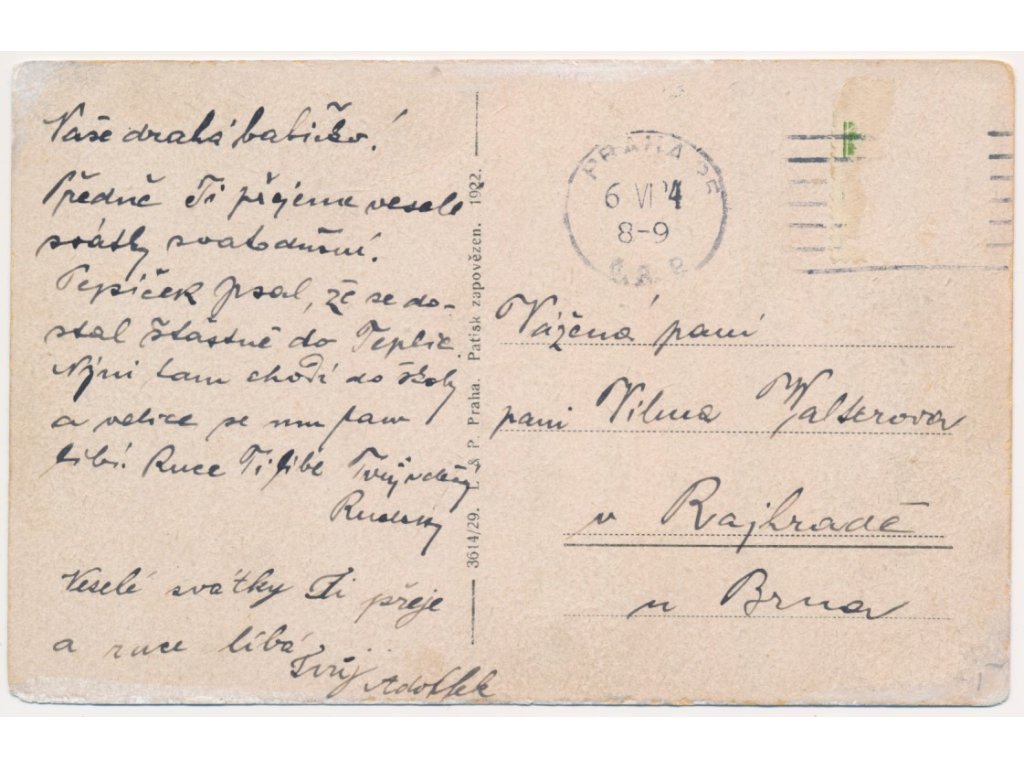 Naše drahá babičko!
Předně Ti přejeme veselé
svátky svatodušní.
Pepíček psal, že se do-
stal šťastně do Teplic.
Nyní tam chodí do školy
a velice se mu tam
líbí. Ruce Ti líbe Tvůj vděčný
Rudolf
Veselé svátky Ti přeje
a ruce líbá
Tvůj Adolfek
3614/29. L & P. Praha. Patisk zapovězen. 1922.
PRAHA 25
6 VI 24
8-9
Č.S.P.
Vážená paní
paní Vilma Walterova
v Rajhradě
u Brna